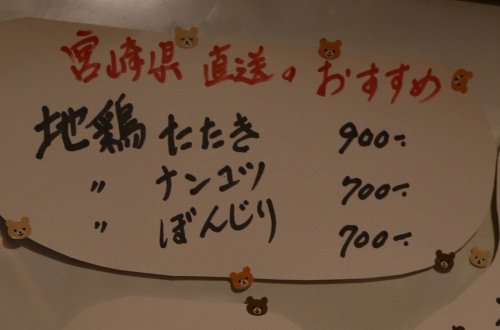 宮崎県 直送のおすすめ
地鶏 たたき 900-
〃 ナンコツ 700-
〃 ぼんじり 700-